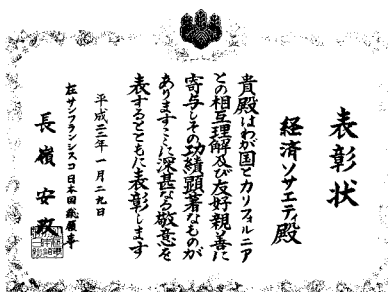 表彰状
経済ソサエティ殿
貴殿はわが国とカリフォルニア
との相互理解及び友好親善に
寄与しその功績顕著なものが
ありますここに深甚なる敬意を
表するとともに表彰します
平成三年一月二九日
在サンフランシスコ日本国総領事
長嶺安政